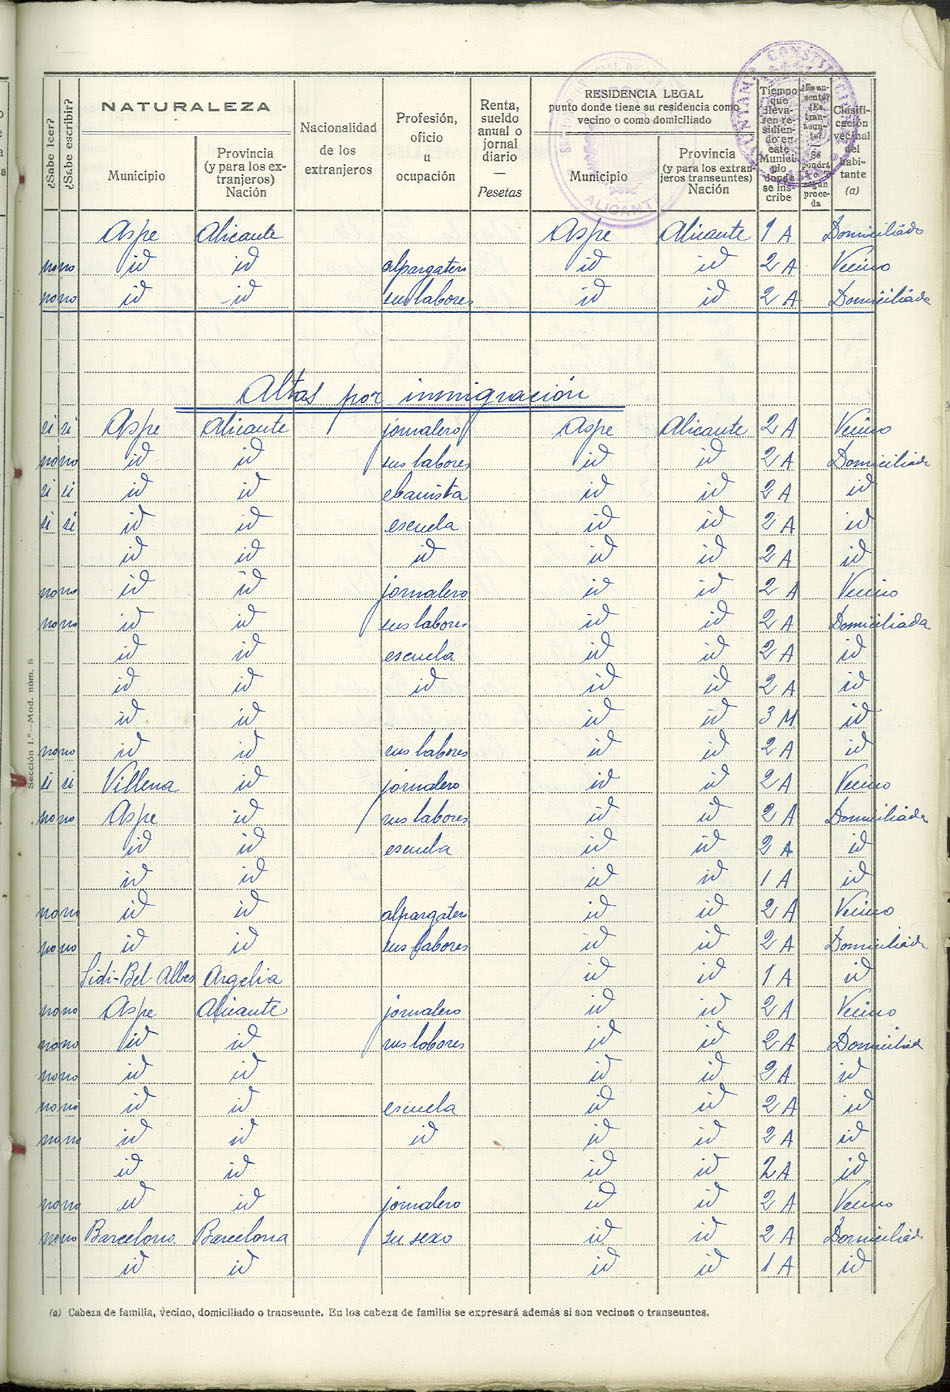 ¿Sabe leer?
¿Sabe escribir?
NATURALEZA
Municipio
Provincia (y para los extranjeros) Nación
Nacionalidad de los extranjeros
Profesión, oficio u ocupación
Renta, sueldo anual o jornal diario — Pesetas
RESIDENCIA LEGAL
punto donde tiene su residencia como vecino o como domiciliado
Municipio
Provincia (y para los extranjeros transeuntes) Nación
Tiempo que lleva residiendo en este Municipio donde se inscribe
Clasificación vecinal del habitante (a)
ALICANTE
Aspe Alicante Aspe Alicante 1 A Domiciliado
no no id id alpargatero id id 2 A Vecino
no no id id sus labores id id 2 A Domiciliada
Altas por inmigración
si si Aspe Alicante jornalero Aspe Alicante 2 A Vecino
no no id id sus labores id id 2 A Domiciliada
si si id id ebanista id id 2 A id
si si id id escuela id id 2 A id
id id id id id 2 A id
no no id id jornalero id id 2 A Vecino
no no id id sus labores id id 2 A Domiciliada
id id escuela id id 2 A id
id id id id id 2 A id
id id id id 3 M id
no no id id sus labores id id 2 A id
si si Villena id jornalero id id 2 A Vecino
no no Aspe id sus labores id id 2 A Domiciliada
id id escuela id id 2 A id
id id id id 1 A id
no no id id alpargatero id id 2 A Vecino
no no id id sus labores id id 2 A Domiciliada
Sidi-Bel-Abbes Argelia id id 1 A id
no no Aspe Alicante jornalero id id 2 A Vecino
no no id id sus labores id id 2 A Domiciliada
no no id id id id 2 A id
no no id id escuela id id 2 A id
no no id id id id id 2 A id
id id id id 2 A id
no no id id jornalero id id 2 A Vecino
no no Barcelona Barcelona su sexo id id 2 A Domiciliada
id id id id 1 A id
Sección 1.ª—Mod. núm. 8
(a) Cabeza de familia, vecino, domiciliado o transeunte. En los cabeza de familia se expresará además si son vecinos o transeuntes.